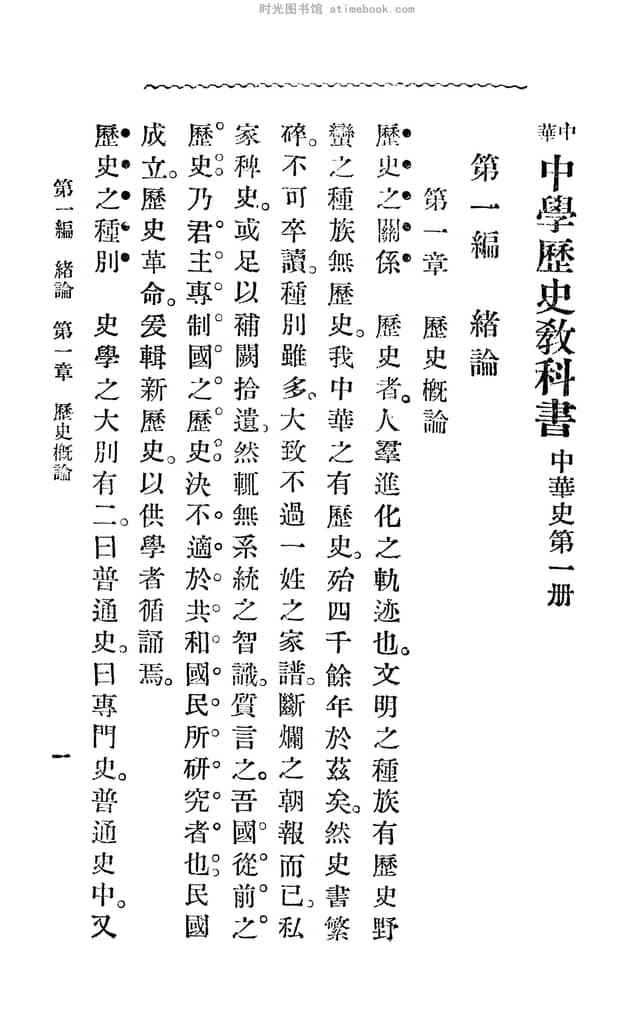 时光图书馆 atimebook.com
中華
中學歷史教科書 中華史第一册
第一編　緒論
第一章　歷史概論
歷史之關係　歷史者。人羣進化之軌迹也。文明之種族有歷史野
蠻之種族無歷史。我中華之有歷史。殆四千餘年於茲矣。然史書繁
碎。不可卒讀。種別雖多。大致不過一姓之家譜。斷爛之朝報而已。私
家稗史。或足以補闕拾遺。然輒無系統之智識。質言之。吾國從前之
歷史乃君主專制國之歷史決不適於共和國民所研究者也。民國
成立。歷史革命。爰輯新歷史。以供學者循誦焉。
歷史之種別　史學之大別有二。曰普通史。曰專門史。普通史中。又
第一編　緒論　第一章　歷史概論
一